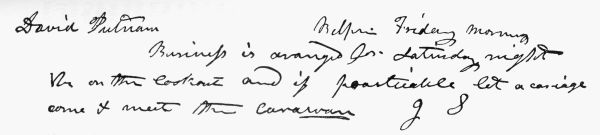 David Putnam Belpre Friday Morning
Business is aranged for Saturday night
be on the lookout and if practicable let a cariage
come & meet the carawan J S